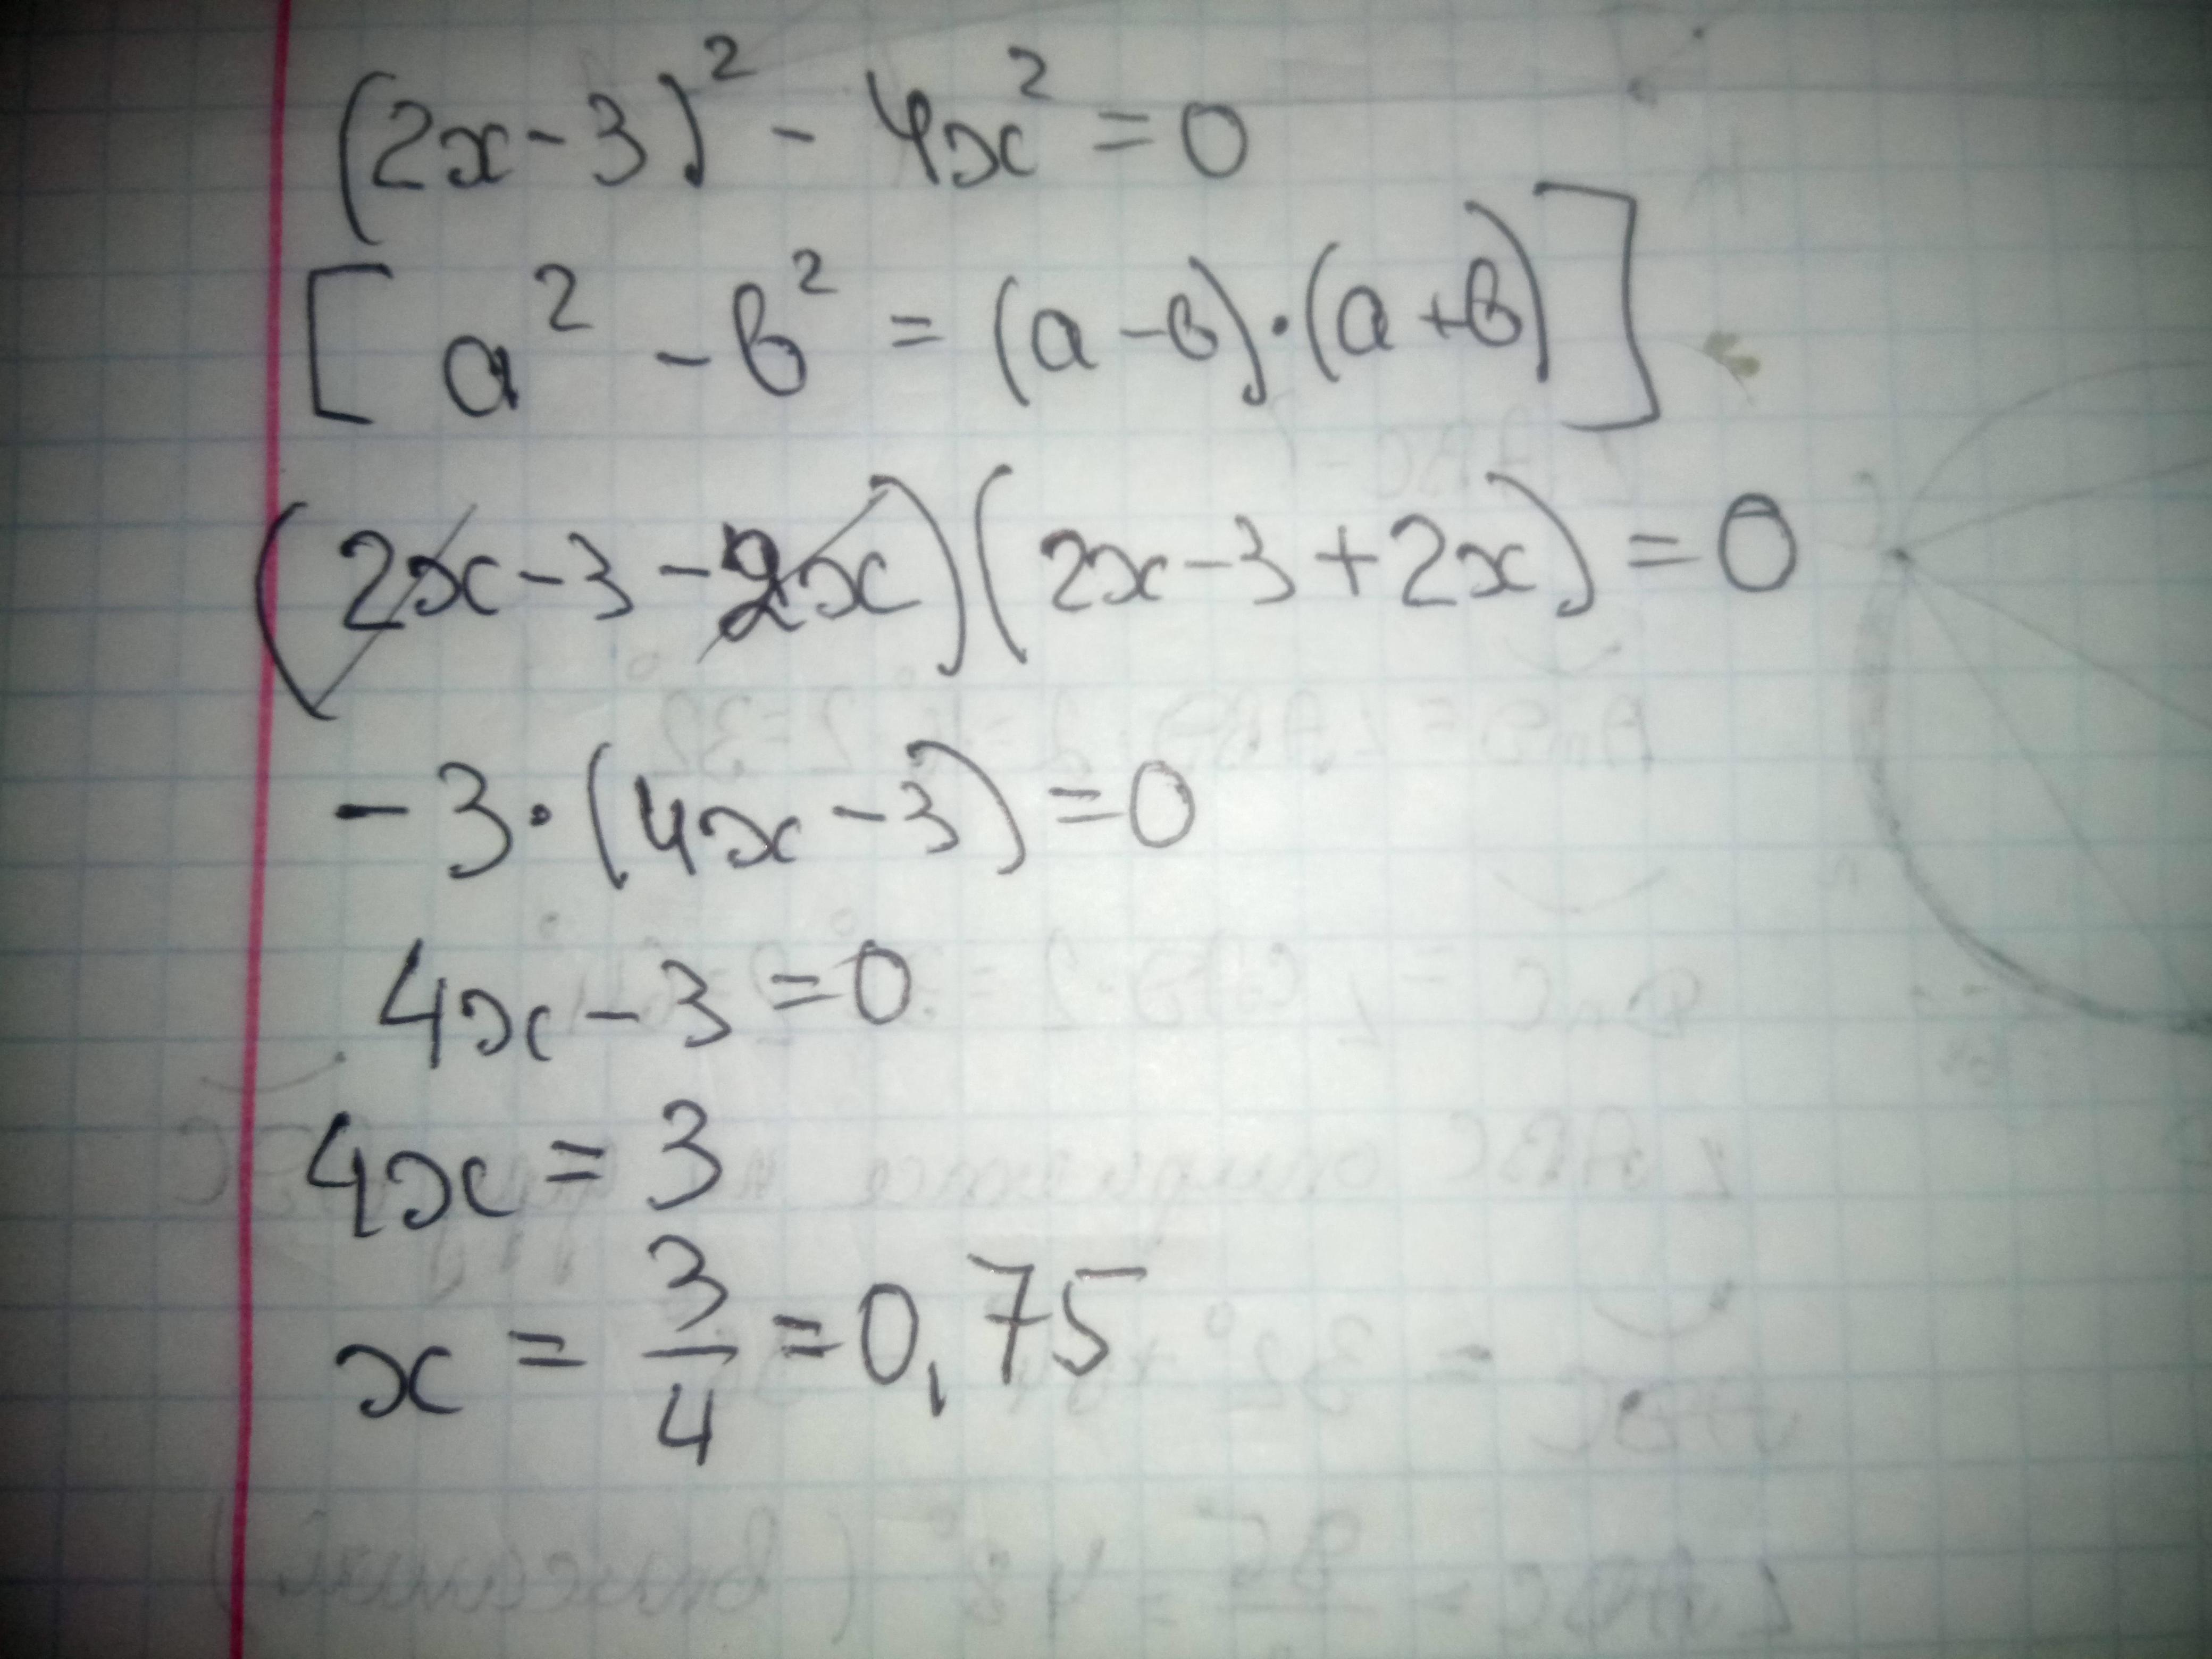 (2x-3)² - 4x² = 0
[a² - в² = (a-в)·(a+в)]
(2x-3-2x)(2x-3+2x) = 0
-3·(4x-3) = 0
4x-3 = 0
4x = 3
x = 3/4 = 0,75